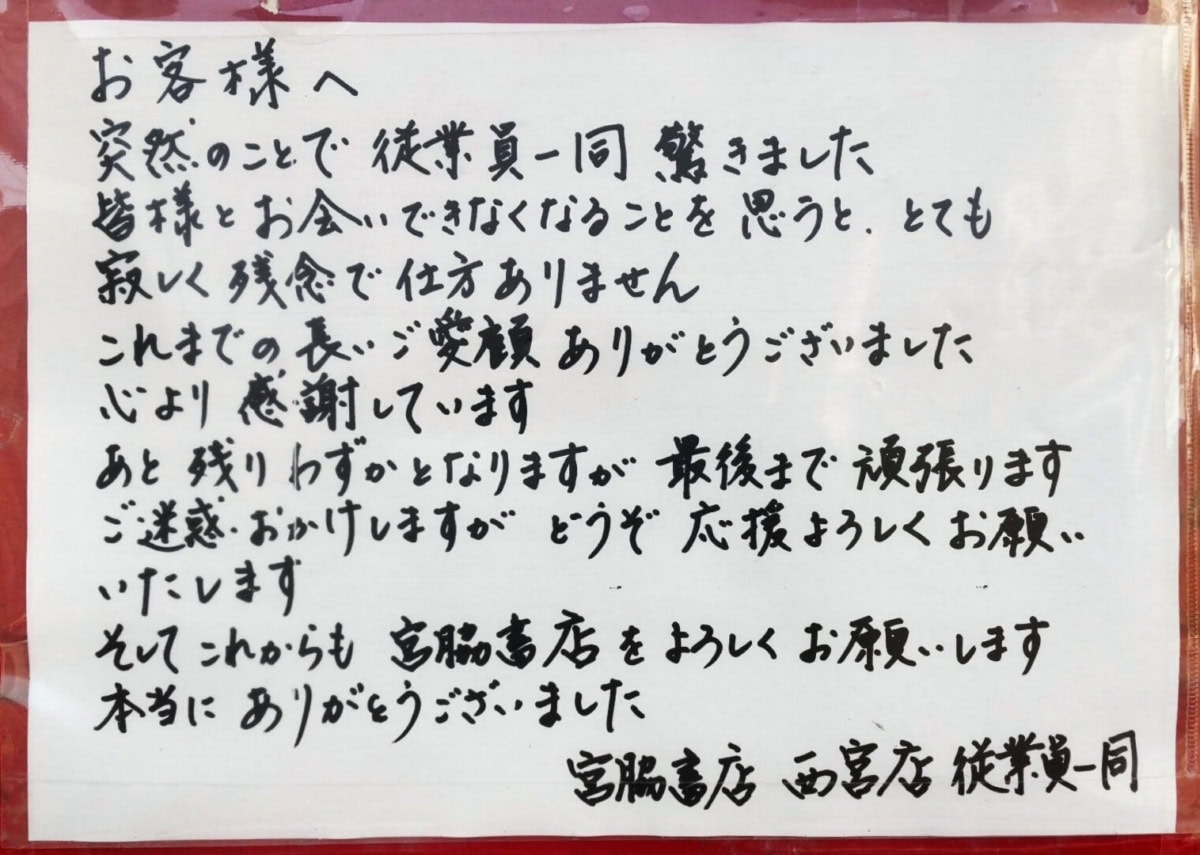 お客様へ
突然のことで 従業員一同 驚きました
皆様とお会いできなくなることを 思うと、とても
寂しく 残念で 仕方ありません
これまでの長いご愛顧 ありがとうございました
心より 感謝しています
あと 残りわずかとなりますが 最後まで 頑張ります
ご迷惑おかけしますが どうぞ 応援よろしくお願い
いたします
そしてこれからも 宮脇書店をよろしくお願いします
本当に ありがとうございました
宮脇書店 西宮店 従業員一同